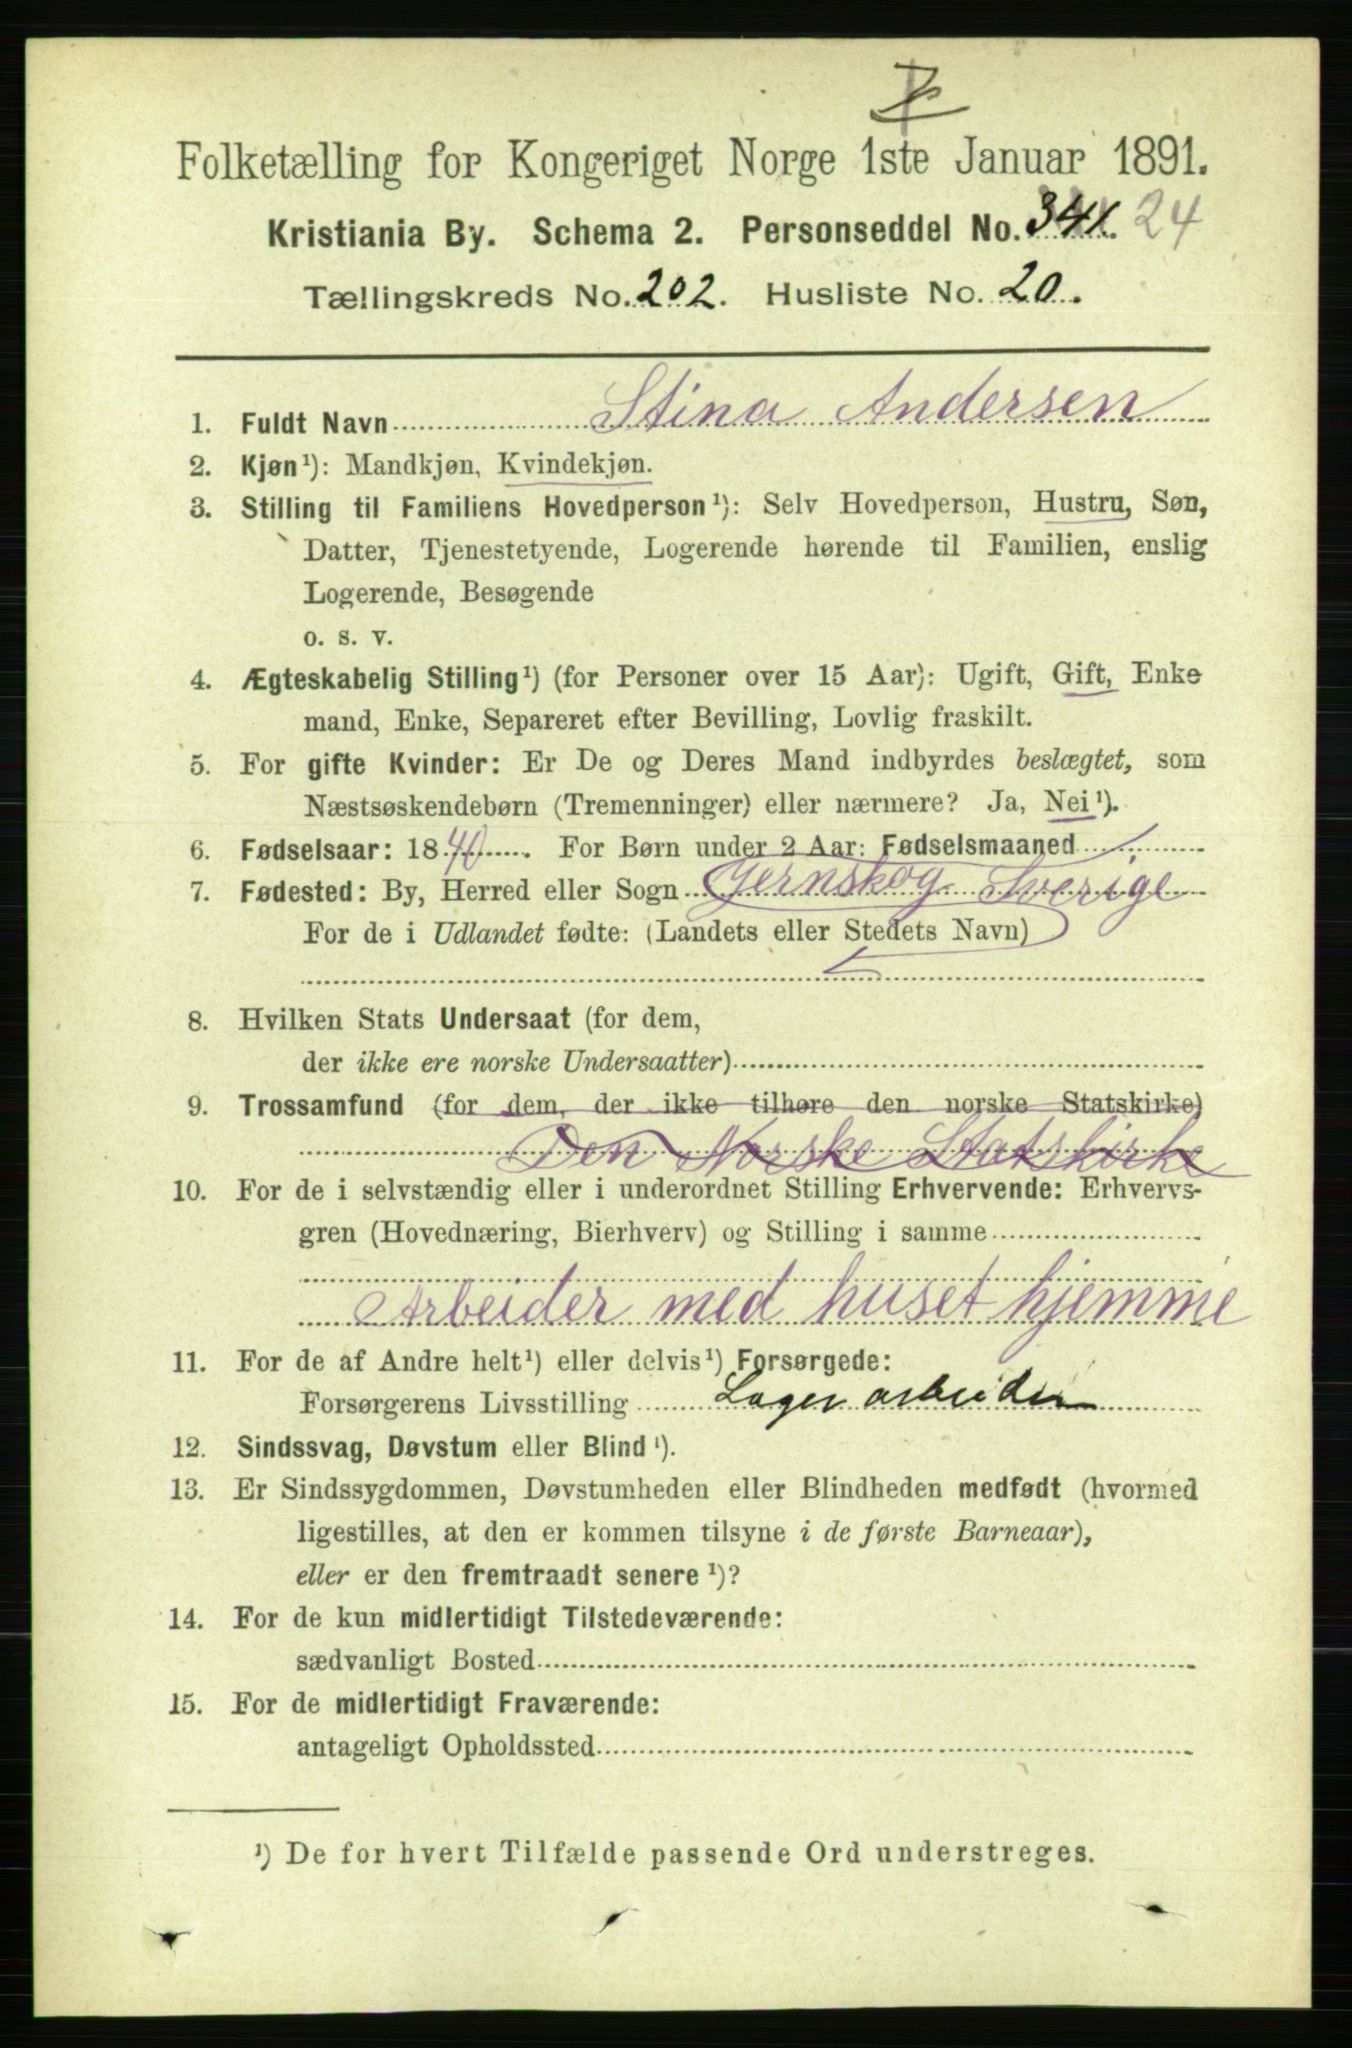 Folketælling for Kongeriget Norge 1ste Januar 1891.
Kristiania By. Schema 2. Personseddel No. 341. 24
Tællingskreds No. 202. Husliste No. 20.
1. Fuldt Navn Stina Andersen
2. Kjøn¹): Mandkjøn, Kvindekjøn.
3. Stilling til Familiens Hovedperson¹): Selv Hovedperson, Hustru, Søn,
Datter, Tjenestetyende, Logerende hørende til Familien, enslig
Logerende, Besøgende
o. s. v.
4. Ægteskabelig Stilling¹) (for Personer over 15 Aar): Ugift, Gift, Enke
mand, Enke, Separeret efter Bevilling, Lovlig fraskilt.
5. For gifte Kvinder: Er De og Deres Mand indbyrdes beslægtet, som
Næstsøskendebørn (Tremenninger) eller nærmere? Ja, Nei¹).
6. Fødselsaar: 1840. For Børn under 2 Aar: Fødselsmaaned
7. Fødested: By, Herred eller Sogn Jernskog Sverige
For de i Udlandet fødte: (Landets eller Stedets Navn)
8. Hvilken Stats Undersaat (for dem,
der ikke ere norske Undersaatter)
9. Trossamfund (for dem, der ikke tilhøre den norske Statskirke)
Den Norske Statskirke
10. For de i selvstændig eller i underordnet Stilling Erhvervende: Erhvervs-
gren (Hovednæring, Bierhverv) og Stilling i samme
Arbeider med huset hjemme
11. For de af Andre helt¹) eller delvis¹) Forsørgede:
Forsørgerens Livsstilling Lagerarbeider
12. Sindssvag, Døvstum eller Blind¹).
13. Er Sindssygdommen, Døvstumheden eller Blindheden medfødt (hvormed
ligestilles, at den er kommen tilsyne i de første Barneaar),
eller er den fremtraadt senere¹)?
14. For de kun midlertidigt Tilstedeværende:
sædvanligt Bosted
15. For de midlertidigt Fraværende:
antageligt Opholdssted
¹) De for hvert Tilfælde passende Ord understreges.